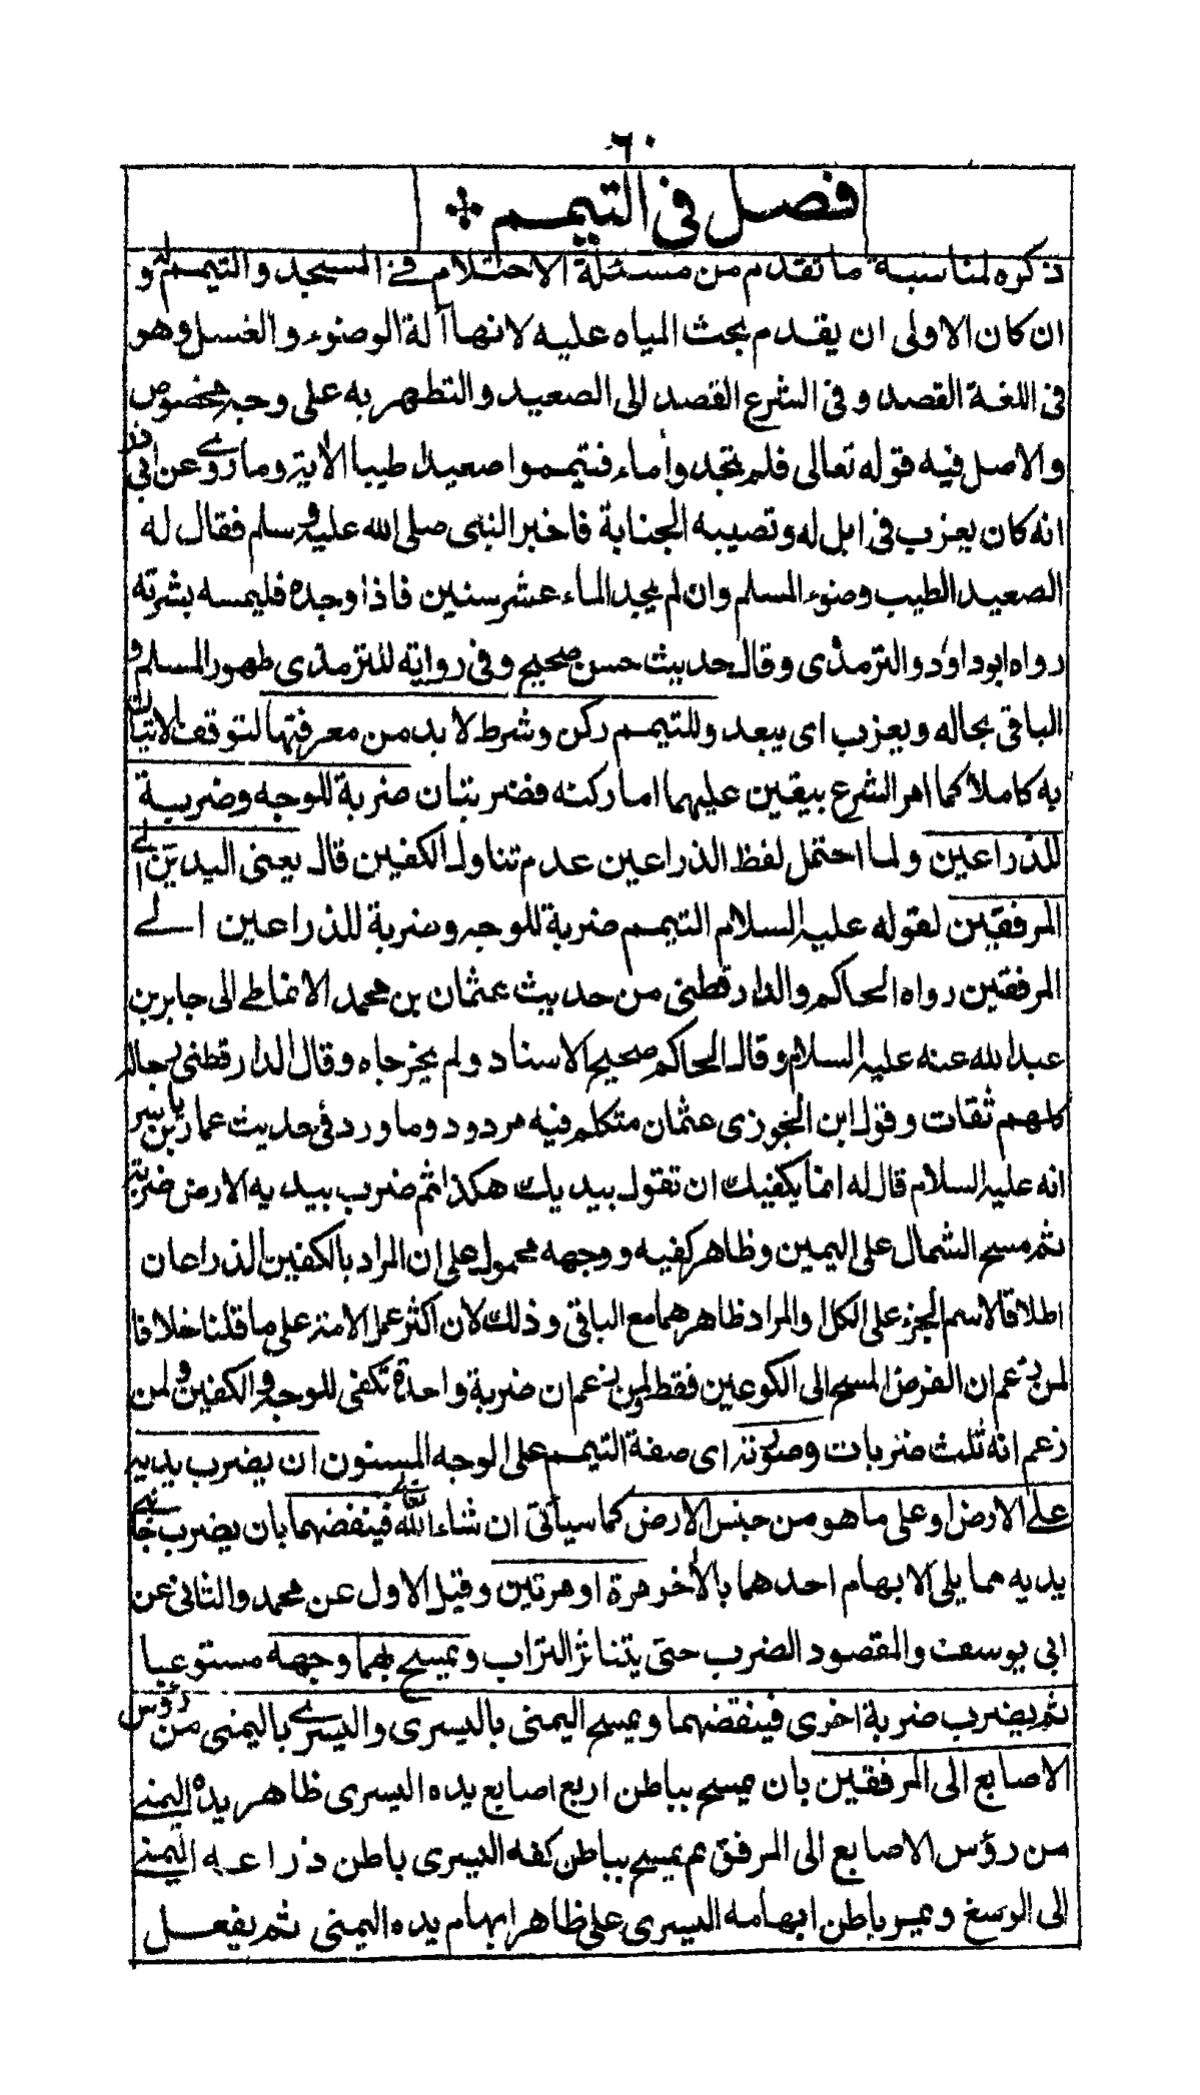 ٦٠
فصل فى التيمم
ذكره لمناسبة ما تقدم من مسئلة الاحتلام فى المسجد والتيمم له و
ان كان الاولى ان يقدم بحث المياه عليه لانها آلة الوضوء والغسل وهو
فى اللغة القصد وفى الشرع القصد الى الصعيد والتطهر به على وجه مخصوص
والاصل فيه قوله تعالى فلم تجدوا ماء فتيمموا صعيدا طيبا الاية وما روى عن ابى ذر
انه كان يعزب فى ابل له وتصيبه الجنابة فاخبر النبى صلى الله عليه وسلم فقال له
الصعيد الطيب وضوء المسلم وان لم يجد الماء عشر سنين فاذا وجده فليمسه بشرته
رواه ابو داود والترمذى وقال حديث حسن صحيح وفى رواية للترمذى طهور المسلم و
الباقى بحاله ويعزب اى يبعد وللتيمم ركن وشرط لا بد من معرفتها لتوقف الاتيان
به كاملا كما امر الشرع بيقين عليهما اما ركنه فضربتان ضربة للوجه وضربة
للذراعين ولما احتمل لفظ الذراعين عدم تناول الكفين قال يعنى اليدين الى
المرفقين لقوله عليه السلام التيمم ضربة للوجه وضربة للذراعين الى
المرفقين رواه الحاكم والدارقطنى من حديث عثمان بن محمد الانماطى الى جابر بن
عبد الله عنه عليه السلام وقال الحاكم صحيح الاسناد ولم يخرجاه وقال الدارقطنى رجاله
كلهم ثقات وقول ابن الجوزى عثمان متكلم فيه مردود وما ورد فى حديث عمار بن ياسر
انه عليه السلام قال له انما يكفيك ان تقول بيديك هكذا ثم ضرب بيديه الارض ضربة
ثم مسح الشمال على اليمين وظاهر كفيه ووجهه محمول على ان المراد بالكفين الذراعان
اطلاقا لاسم الجزء على الكل او المراد ظاهرهما مع الباقى وذلك لان اكثر عمل الامة على ما قلنا خلافا
لمن زعم ان الفرض المسح الى الكوعين فقط ولمن زعم ان ضربة واحدة تكفى للوجه والكفين ولمن
زعم انه ثلث ضربات وصورته اى صفة التيمم على الوجه المسنون ان يضرب يديه
على الارض او على ما هو من جنس الارض كما سيأتى ان شاء الله تعالى فينفضهما بان يضرب جانبى
يديه مما يلى الابهام احدهما بالأخر مرة او مرتين وقيل الاول عن محمد والثانى عن
ابى يوسف والمقصود الضرب حتى يتناثر التراب ويمسح بهما وجهه مستوعبا
ثم يضرب ضربة اخرى فينفضهما ويمسح اليمنى باليسرى واليسرى باليمنى من رؤس
الاصابع الى المرفقين بان يمسح بباطن اربع اصابع يده اليسرى ظاهر يده اليمنى
من رؤس الاصابع الى المرفق ثم يمسح بباطن كفه اليسرى باطن ذراعه اليمنى
الى الرسغ ويمر باطن ابهامه اليسرى على ظاهر ابهام يده اليمنى ثم يفعل